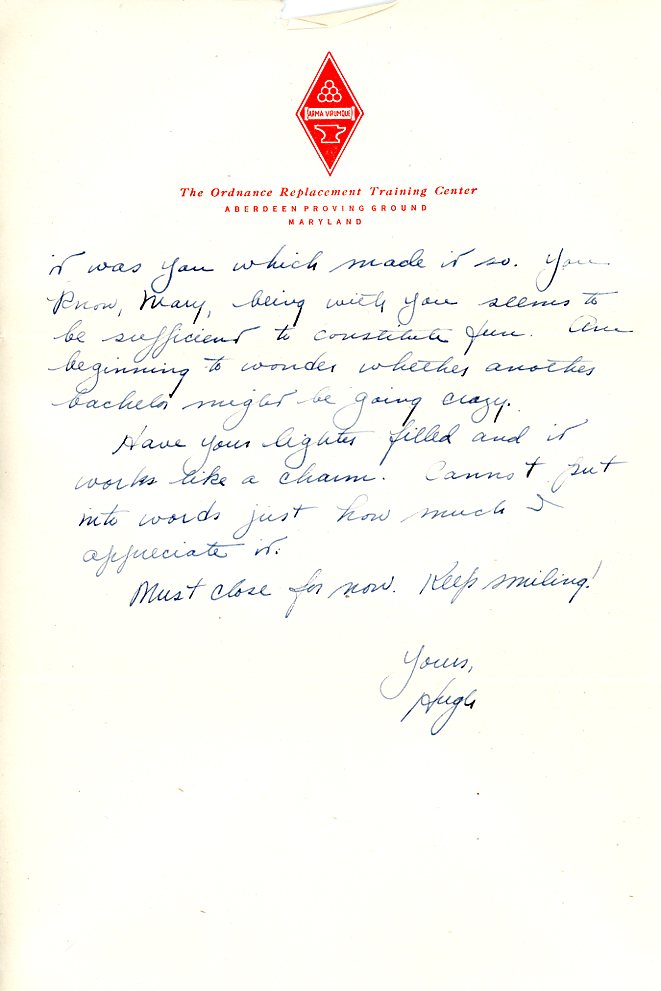 ARMA VIRUMQUE
The Ordnance Replacement Training Center
ABERDEEN PROVING GROUND
MARYLAND
it was you which made it so. You
know, Mary, being with you seems to
be sufficient to constitute fun. Am
beginning to wonder whether another
bachelor might be going crazy.
Have your lighter filled and it
works like a charm. Cannot put
into words just how much I
appreciate it.
Must close for now. Keep smiling!
Yours,
Hugh